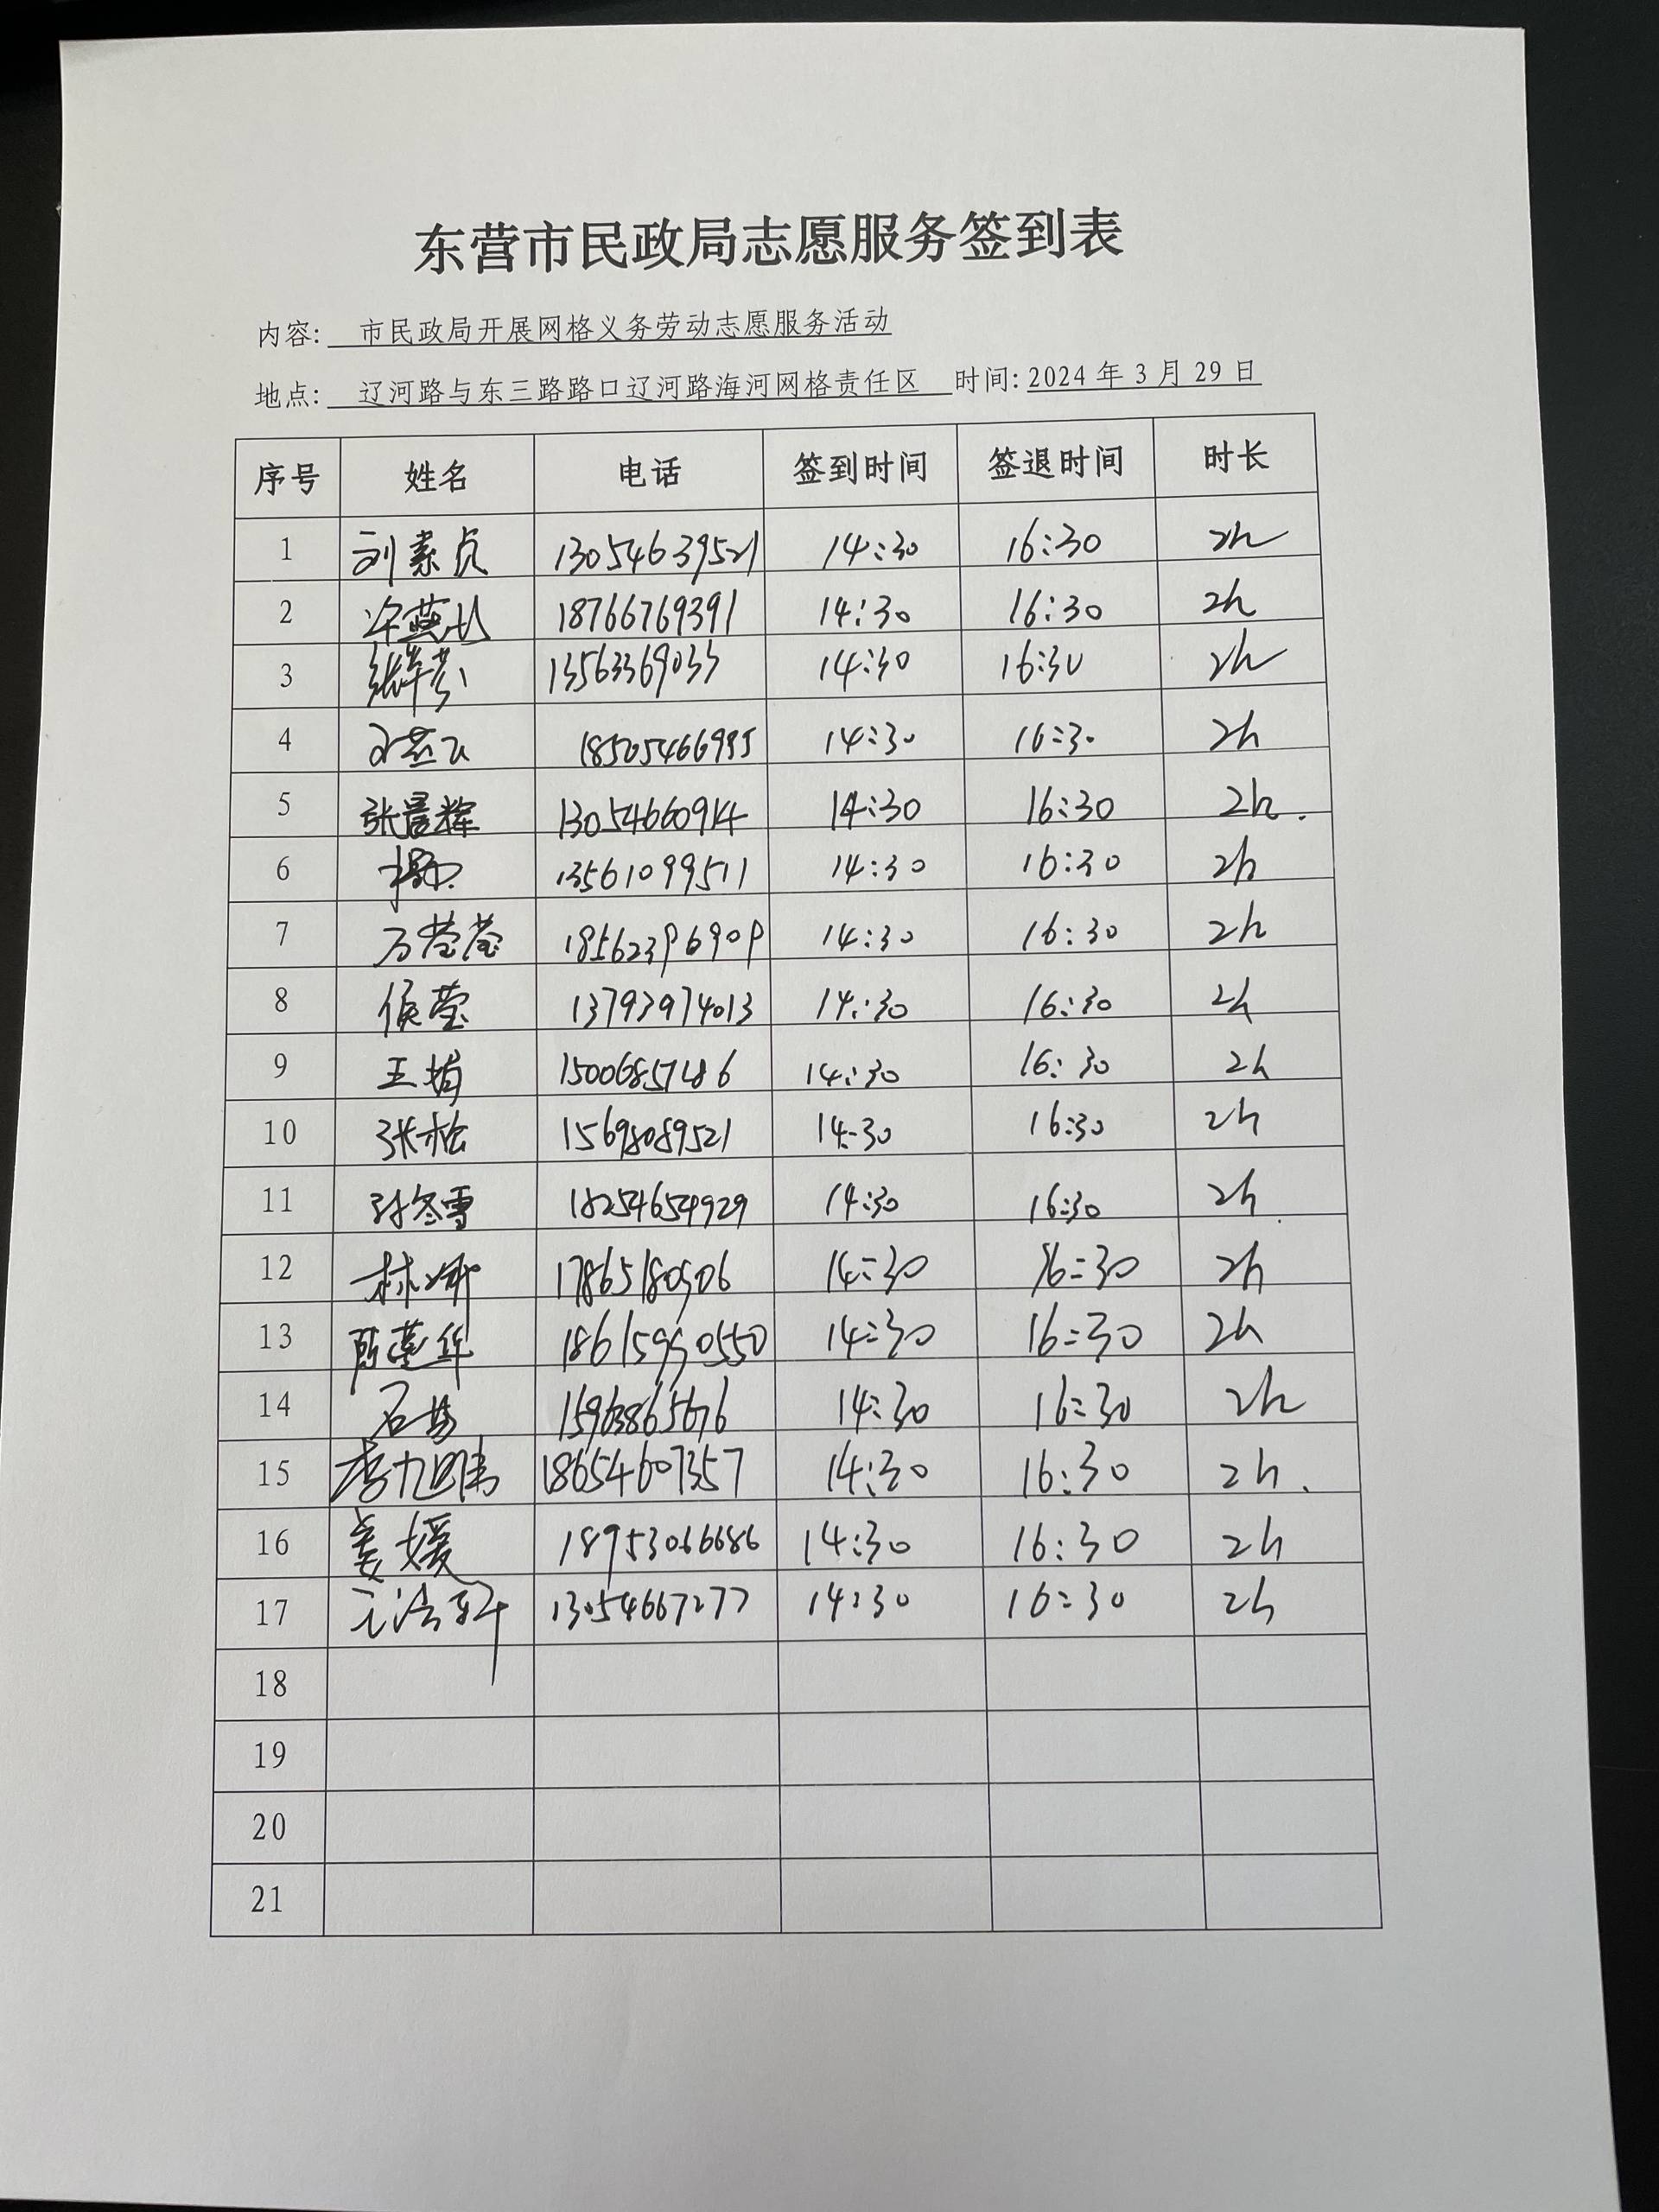 东营市民政局志愿服务签到表
内容: 市民政局开展网格义务劳动志愿服务活动
地点: 辽河路与东三路路口辽河路海河网格责任区 时间: 2024 年 3 月 29 日
序号 姓名 电话 签到时间 签退时间 时长
1 刘素贞 13054639521 14:30 16:30 2h
2 18766769391 14:30 16:30 2h
3 13563369033 14:30 16:30 2h
4 18505466995 14:30 16:30 2h
5 张晨辉 13054660914 14:30 16:30 2h.
6 13561099511 14:30 16:30 2h
7 万莹莹 18562396909 14:30 16:30 2h
8 侯莹 13793974013 14:30 16:30 2h
9 王娟 14:30 16:30 2h
10 张松 15698089521 14:30 16:30 2h
11 孙冬雪 18254654929 14:30 16:30 2h
12 17865180506 14:30 16:30 2h
13 陈莲华 18615990550 14:30 16:30 2h
14 15963865676 14:30 16:30 2h
15 李旭伟 18654607357 14:30 16:30 2h.
16 姜媛 18953066686 14:30 16:30 2h
17 13054667277 14:30 16:30 2h
18
19
20
21